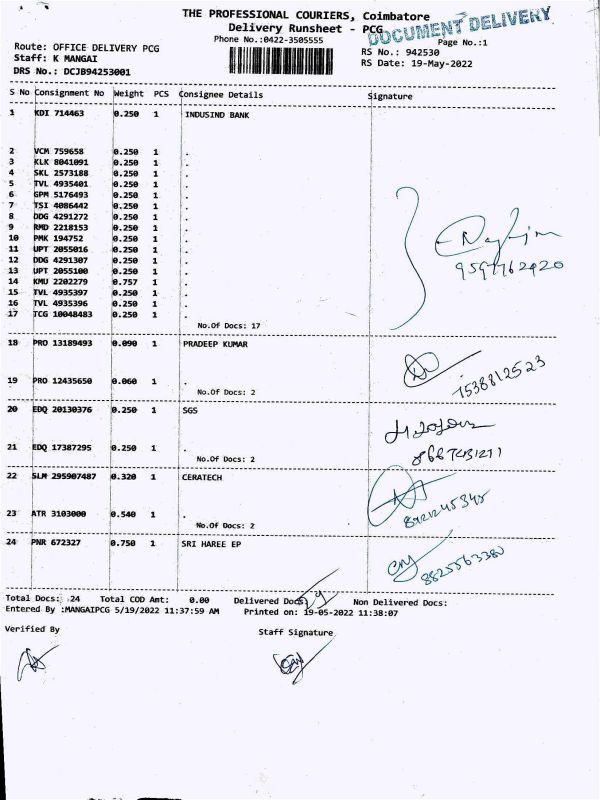 THE PROFESSIONAL COURIERS, Coimbatore
Delivery Runsheet - PCG
DOCUMENT DELIVERY
Phone No.:0422-3505555
Page No.:1
Route: OFFICE DELIVERY PCG
RS No.: 942530
Staff: K MANGAI
RS Date: 19-May-2022
DRS No.: DCJB94253001
S No Consignment No Weight PCS Consignee Details Signature
1 KDI 714463 0.250 1 INDUSIND BANK
2 VCM 759658 0.250 1 .
3 KLK 8041091 0.250 1 .
4 SKL 2573188 0.250 1 .
5 TVL 4935401 0.250 1 .
6 GPM 5176493 0.250 1 .
7 TSI 4086442 0.250 1 .
8 DDG 4291272 0.250 1 .
9 RMD 2218153 0.250 1 .
10 PMK 194752 0.250 1 .
11 UPT 2055016 0.250 1 .
12 DDG 4291307 0.250 1 .
13 UPT 2055100 0.250 1 .
14 KMU 2202279 0.757 1 .
15 TVL 4935397 0.250 1 .
16 TVL 4935396 0.250 1 .
17 TCG 10048483 0.250 1 .
9597762020
No.Of Docs: 17
18 PRO 13189493 0.090 1 PRADEEP KUMAR
19 PRO 12435650 0.060 1 .
7538812523
No.Of Docs: 2
20 EDQ 20130376 0.250 1 SGS
21 EDQ 17387295 0.250 1 .
No.Of Docs: 2
22 SLM 295907487 0.320 1 CERATECH
23 ATR 3103000 0.540 1 .
No.Of Docs: 2
24 PNR 672327 0.750 1 SRI HAREE EP
8825563380
Total Docs: 24 Total COD Amt: 0.00 Delivered Docs: Non Delivered Docs:
Entered By :MANGAIPCG 5/19/2022 11:37:59 AM Printed on: 19-05-2022 11:38:07
Verified By Staff Signature